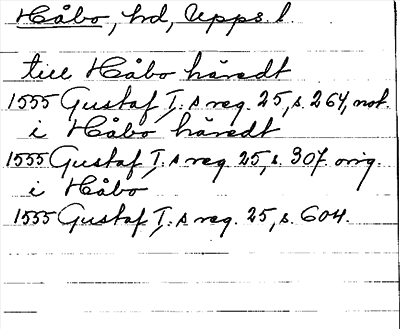 Håbo, hd, Upps. l.
till Håbo häredt
1555 Gustaf I:s reg. 25, s. 264, not.
i Håbo häredt
1555 Gustaf I:s reg. 25, s. 307. orig.
i Håbo
1555 Gustaf I:s reg. 25, s. 604.